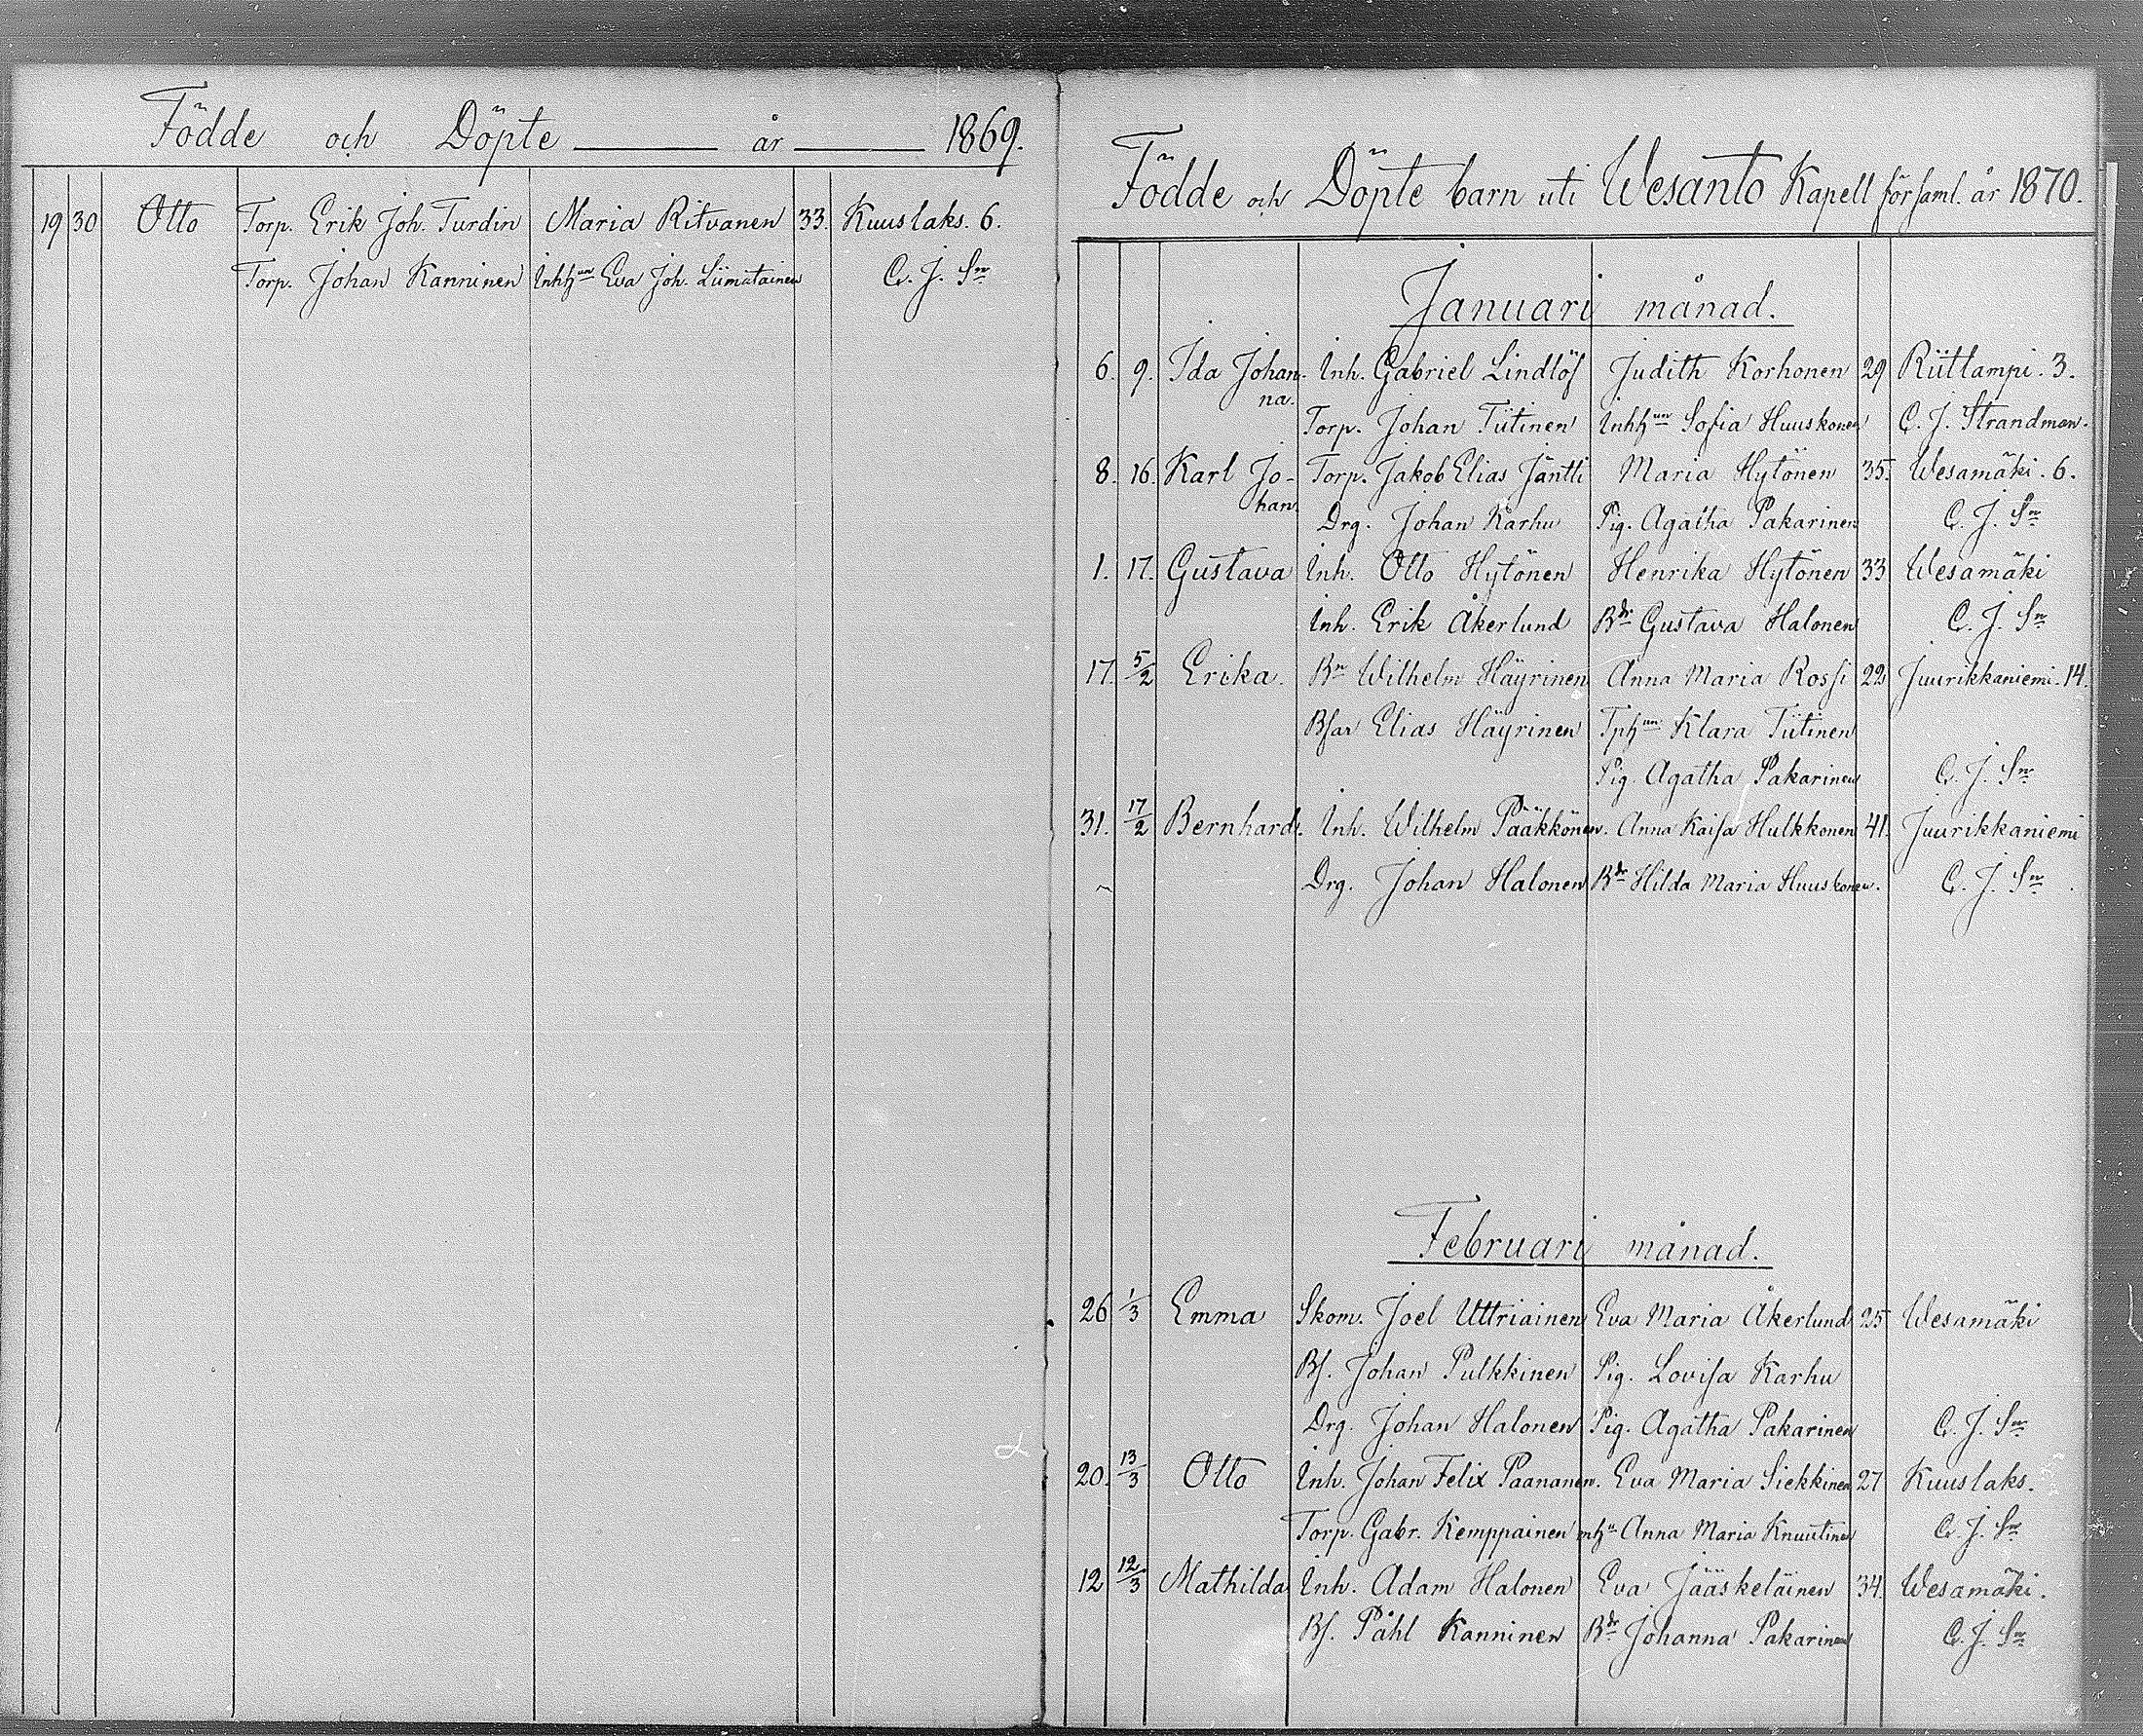 Födde och Döpte år 1869.
19 30 Otto Torp. Erik Joh. Turdin Maria Ritvanen 33. Kuuslaks. 6.
Torp. Johan Kanninen Inhhun Eva Joh. Liimatainen C. J. Sn
Födde och Döpte barn uti Wesanto Kapell församl. år 1870.
Januari månad.
6. 9. Ida Johan- Inh. Gabriel Lindlöf Judith Korhonen 29 Riitlampi. 3.
na. Torp. Johan Tiitinen Inhhun Sofia Huuskonen C. J. Strandman.
8. 16. Karl Jo- Torp. Jakob Elias Jäntti Maria Hytönen 35. Wesamäki. 6.
han. Drg. Johan Karhu Pig. Agatha Pakarinen C. J. Sn
1. 17. Gustava Inh. Otto Hytönen Henrika Hytönen 33 Wesamäki
Inh. Erik Åkerlund Bdr Gustava Halonen C. J. Sn
17. 5/2 Erika. Bn Wilhelm Häyrinen Anna Maria Rossi 22 Juurikkaniemi. 14.
Bfar Elias Häyrinen Tphun Klara Tiitinen
Pig. Agatha Pakarinen C. J. Sn
31. 17/2 Bernhard. Inh. Wilhelm Pääkkönen. Anna Kaisa Hulkkonen 41. Juurikkaniemi
Drg. Johan Halonen Bdr Hilda Maria Huuskonen. C. J. Sn
Februari månad.
26 1/3 Emma Skom. Joel Uttriainen Eva Maria Åkerlund 25 Wesamäki
Bs. Johan Pulkkinen Pig. Lovisa Karhu
Drg. Johan Halonen Pig. Agatha Pakarinen C. J. Sn
20. 13/3 Otto Inh. Johan Felix Paananen. Eva Maria Siekkinen 27 Kuuslaks.
Torp. Gabr. Kemppainen mhu Anna Maria Knuutinen C. J. Sn
12 12/3 Mathilda Inh. Adam Halonen Eva Jääskeläinen 34. Wesamäki.
Bs. Påhl Kanninen Bdr Johanna Pakarinen C. J. Sn